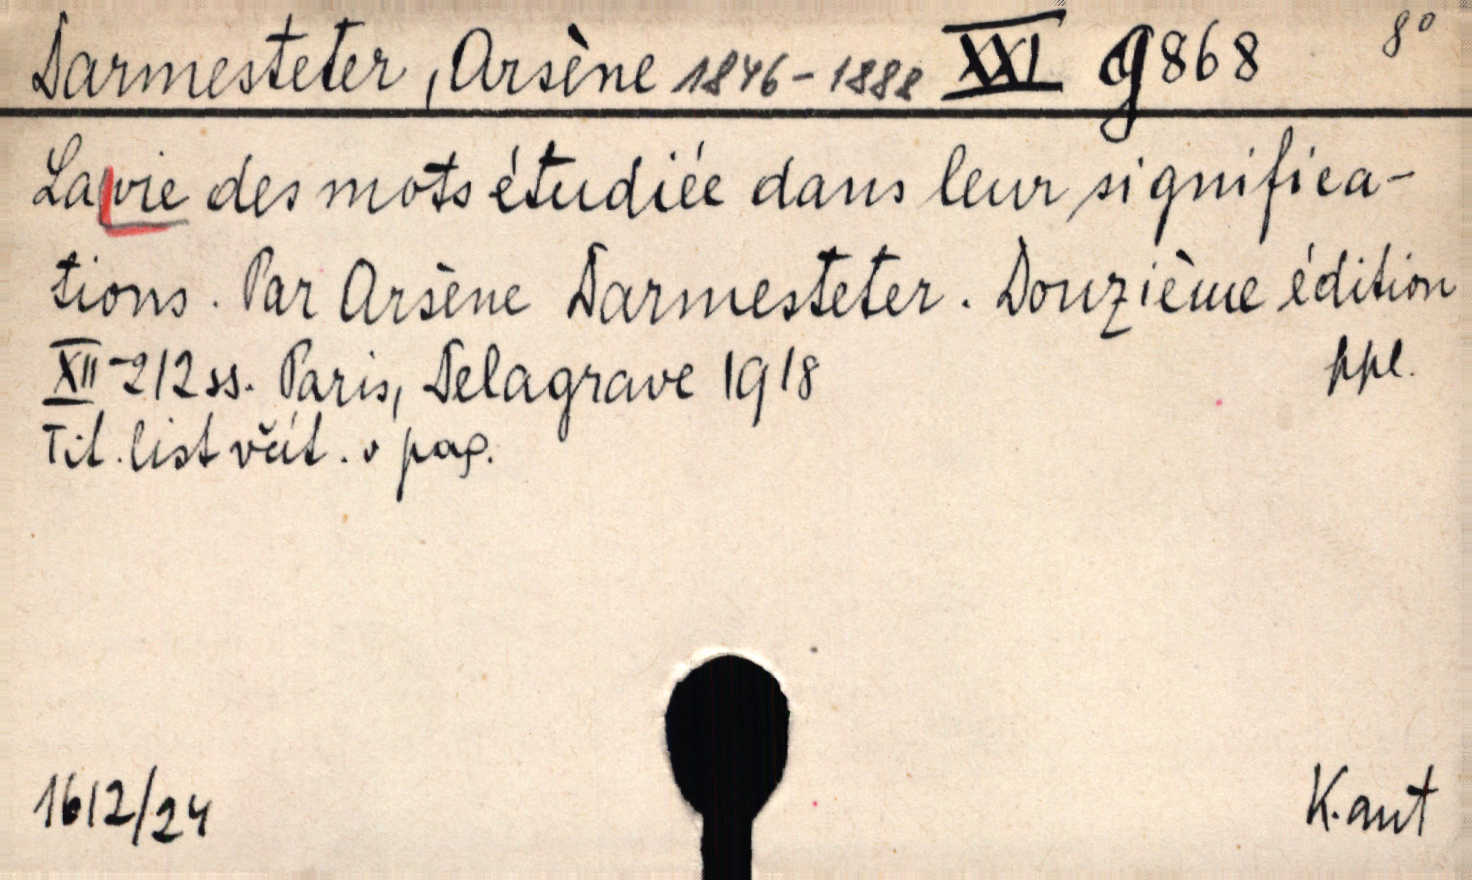 Darmesteter, Arsène 1846-1888 XXI g 868 8°
La vie des mots étudiée dans leur significa-
tions. Par Arsène Darmesteter. Douzième édition
XII-212 ss. Paris, Delagrave 1918 ppl.
Tit. list včít. v pag.
1612/24 K. aut